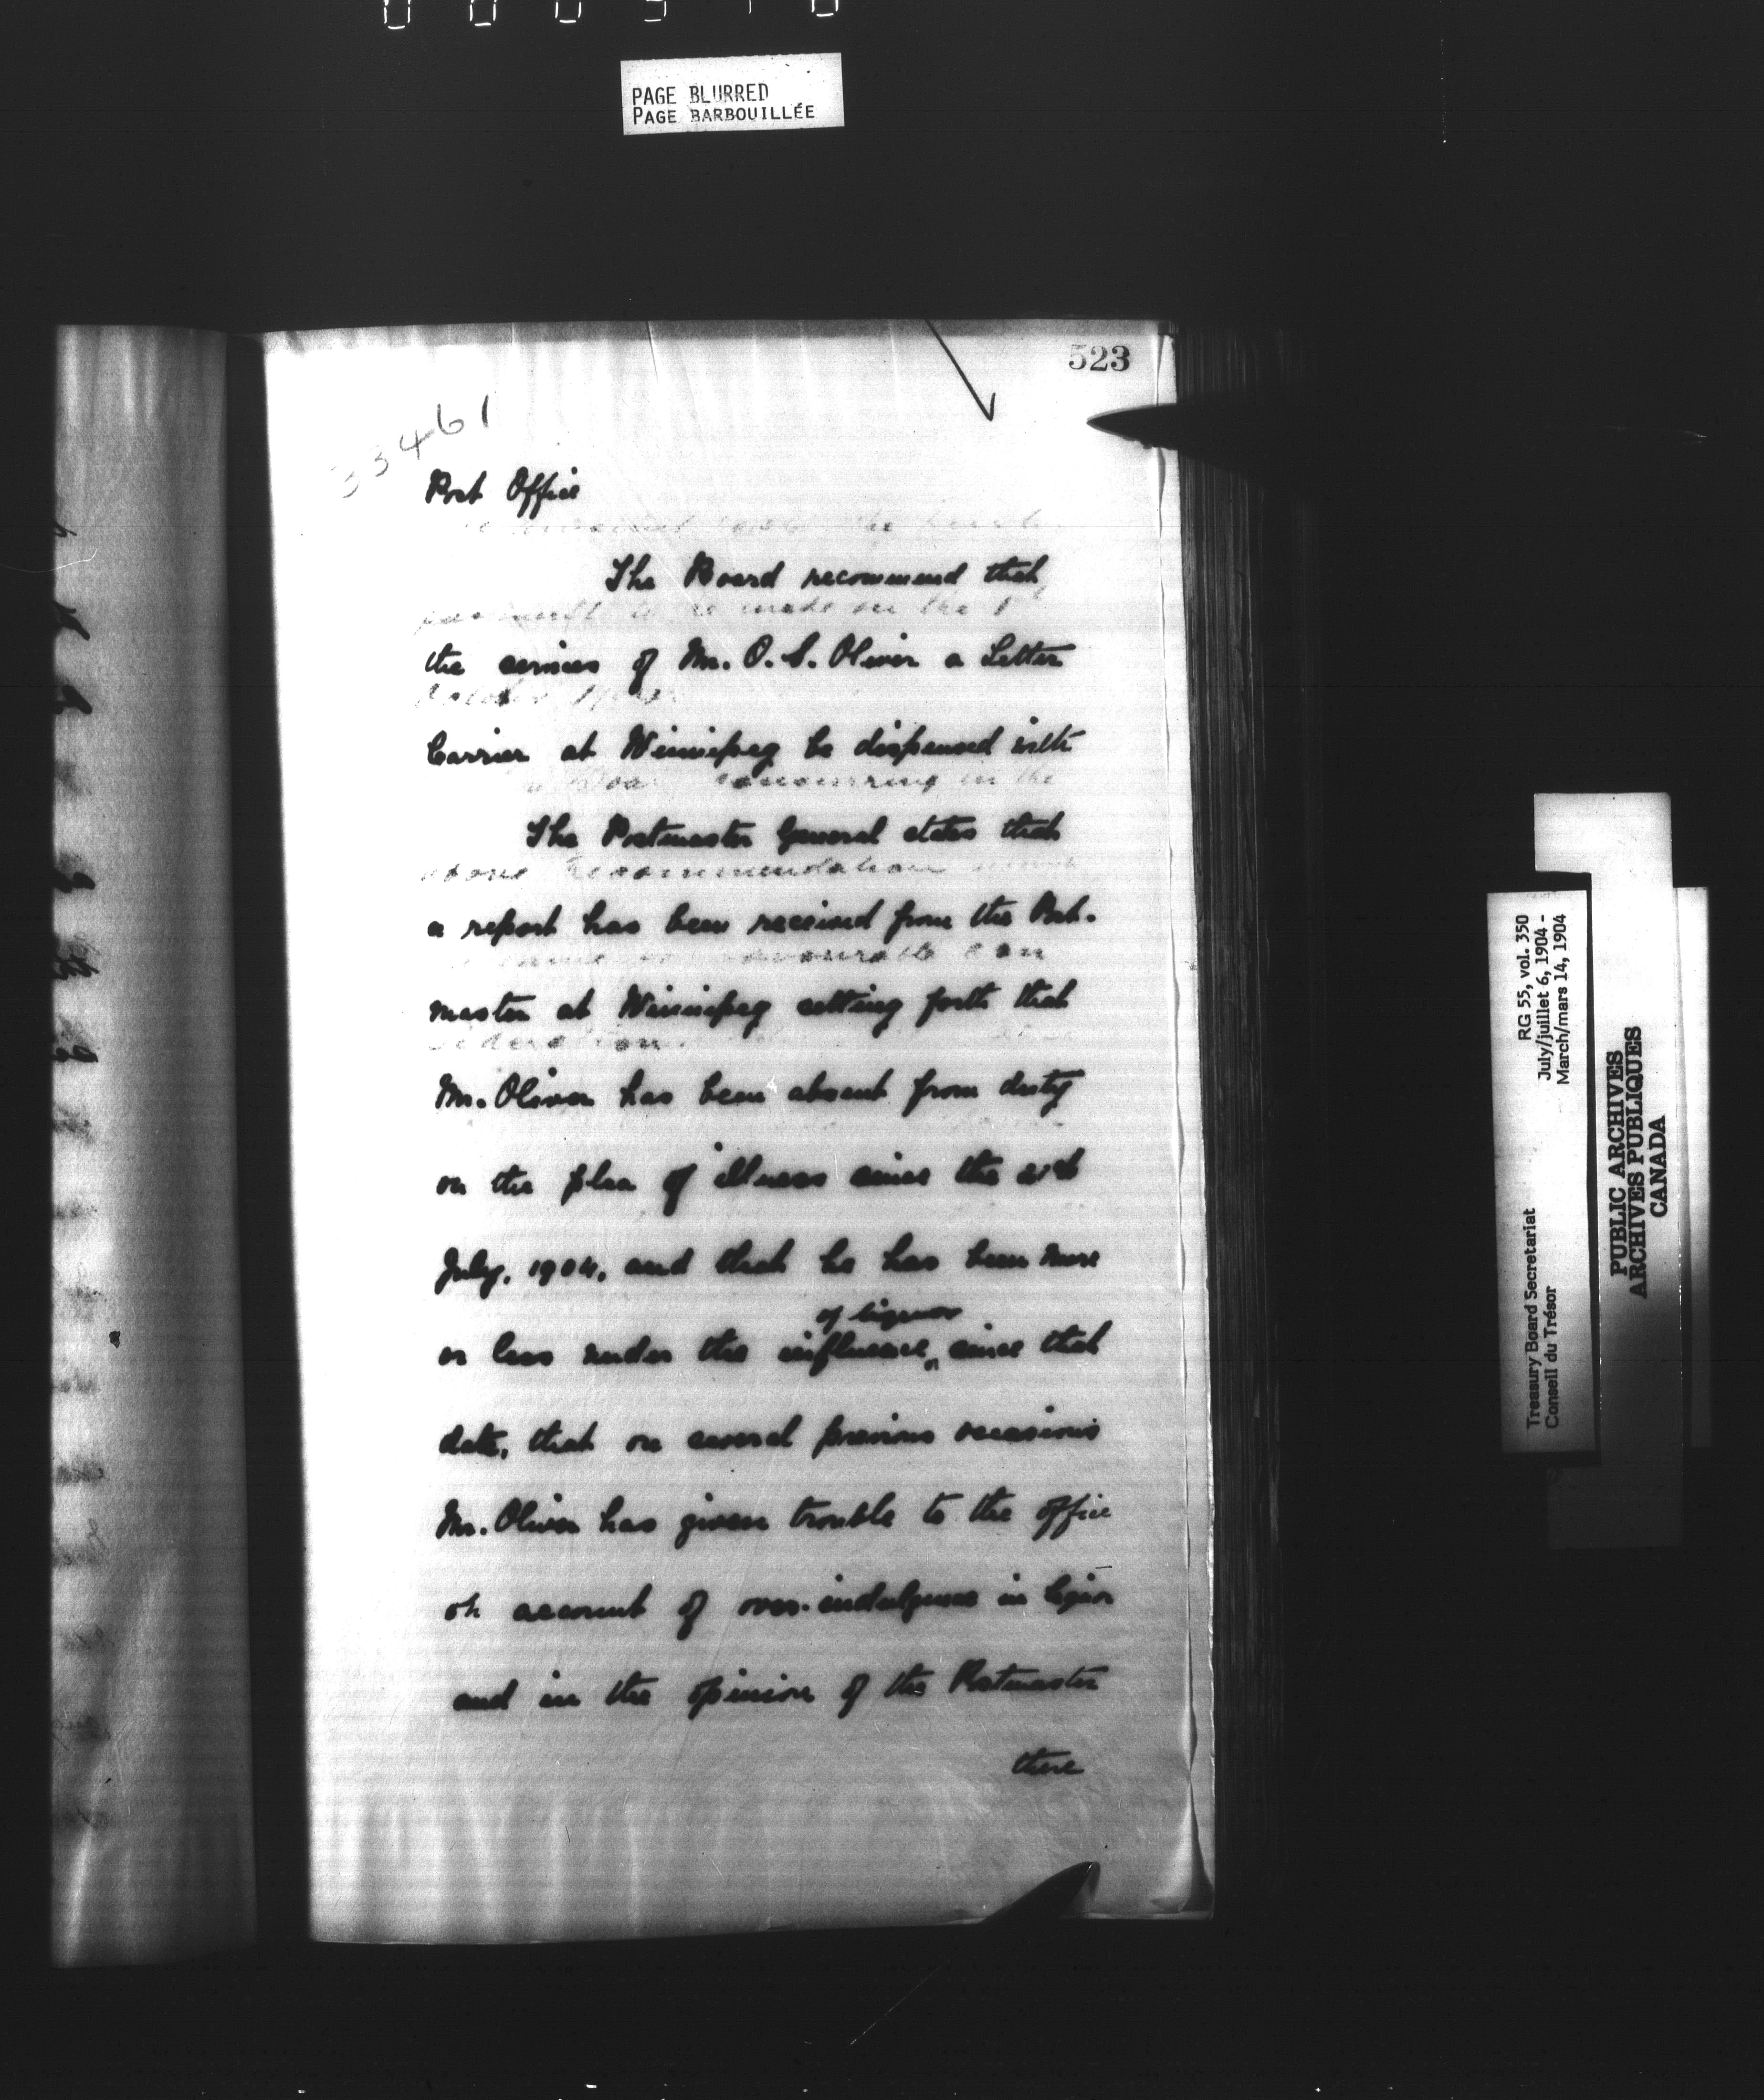 PAGE BLURRED
PAGE BARBOUILLÉE
523
33461
Post Office
The Board recommend that
the services of Mr. O. S. Oliver a Letter
Carrier at Winnipeg be dispensed with
The Postmaster General states that
a report has been received from the Post-
master at Winnipeg setting forth that
Mr. Oliver has been absent from duty
on the plea of illness since the 21st
July, 1904, and that he has been more
of liquor
or less under the influence, since that
date, that on several previous occasions
Mr. Oliver has given trouble to the office
on account of over-indulgence in liquor
and in the opinion of the Postmaster
there
RG 55, vol. 350
July/juillet 6, 1904 -
March/mars 14, 1904
Treasury Board Secretariat
Conseil du Trésor
PUBLIC ARCHIVES
ARCHIVES PUBLIQUES
CANADA